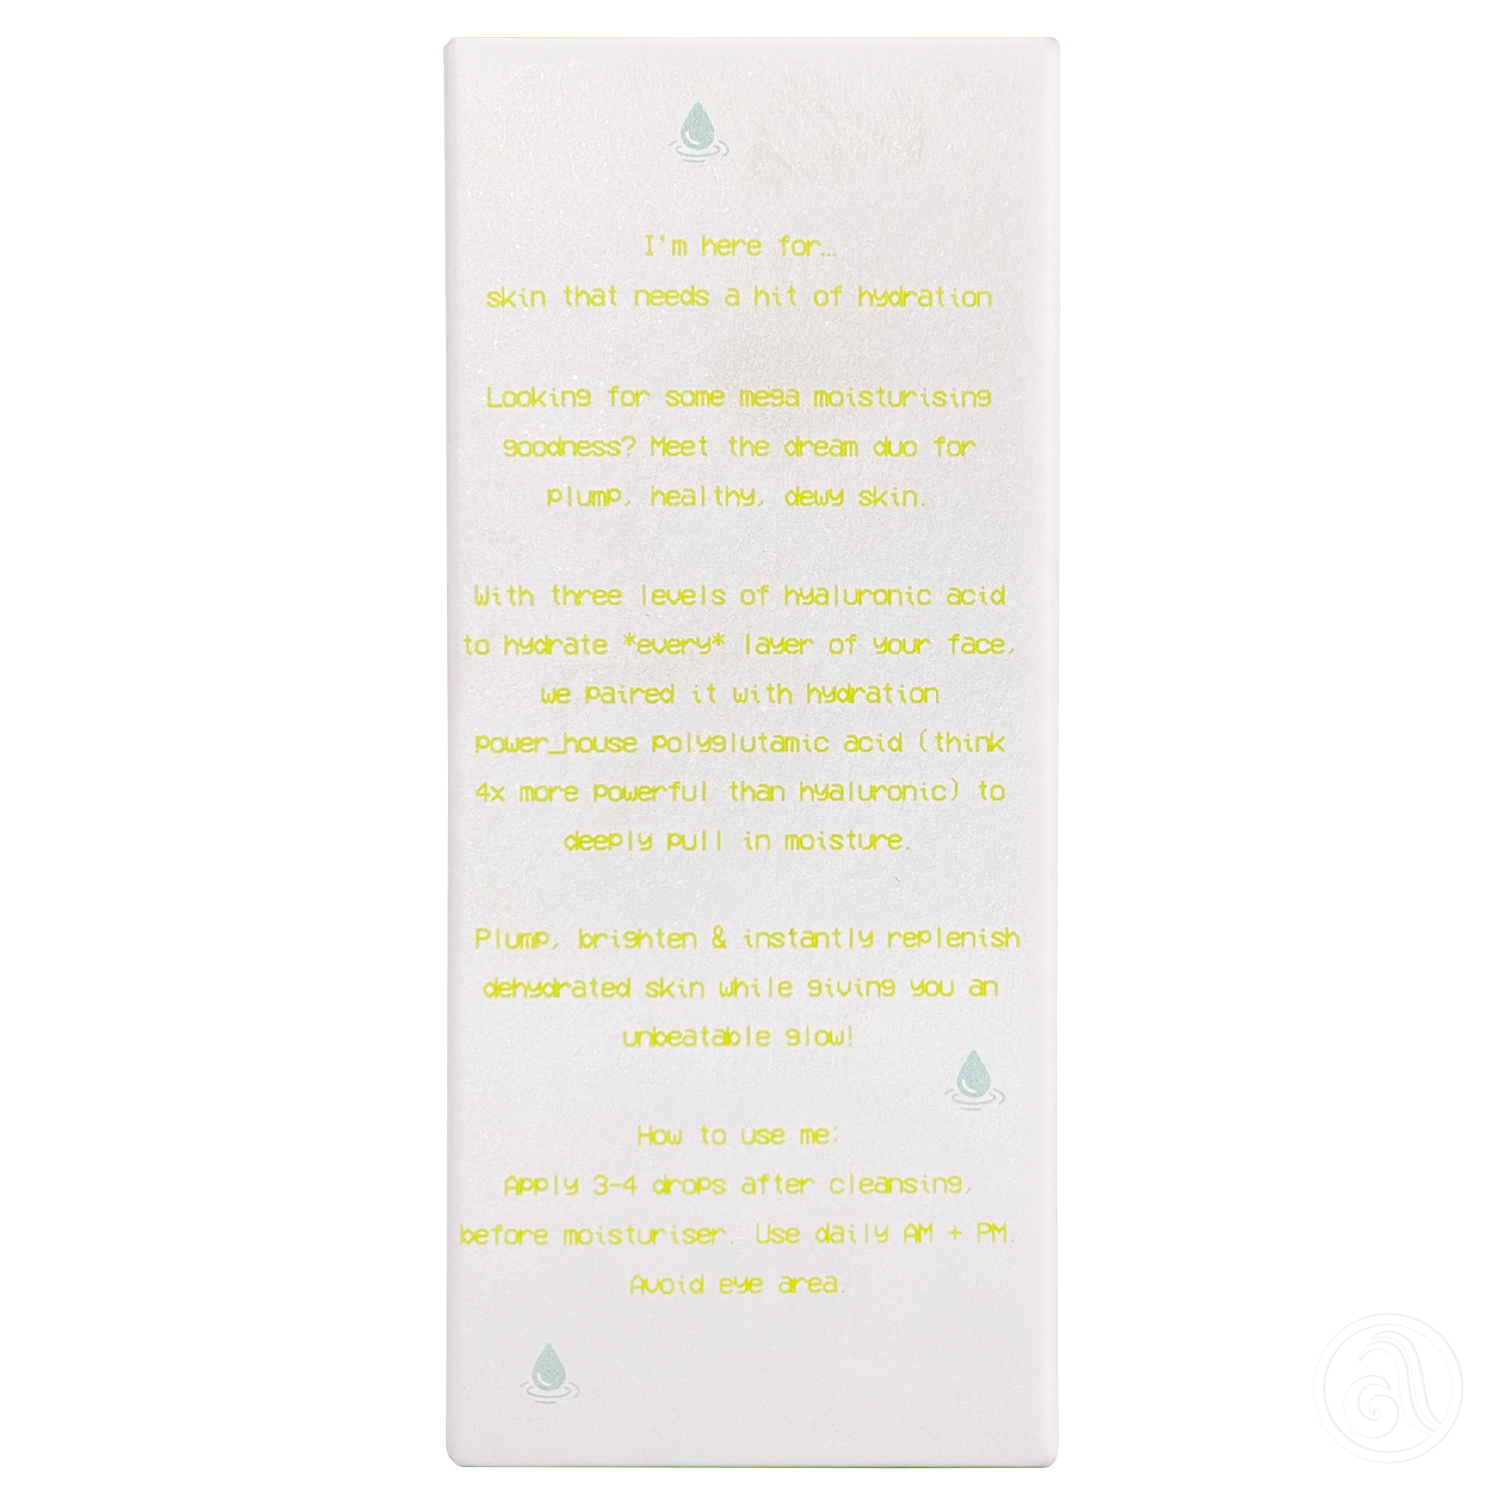 I'm here for...
skin that needs a hit of hydration
Looking for some mega moisturising
goodness? Meet the dream duo for
plump, healthy, dewy skin.
With three levels of hyaluronic acid
to hydrate *every* layer of your face,
we paired it with hydration
power_house polyglutamic acid (think
4x more powerful than hyaluronic) to
deeply pull in moisture.
Plump, brighten & instantly replenish
dehydrated skin while giving you an
unbeatable glow!
How to use me:
Apply 3-4 drops after cleansing,
before moisturiser. Use daily AM + PM.
Avoid eye area.